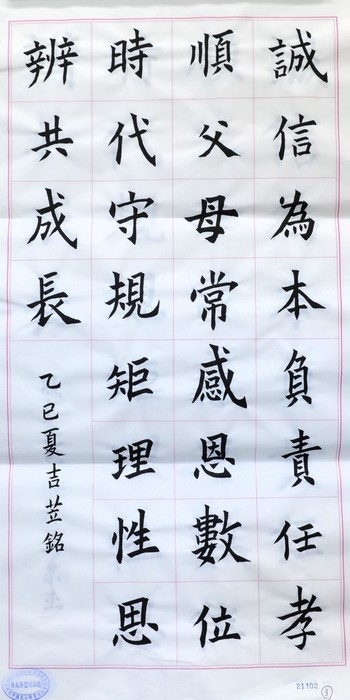 誠信為本負責任孝
順父母常感恩數位
時代守規矩理性思
辨共成長
乙巳夏吉苙銘
21102
3